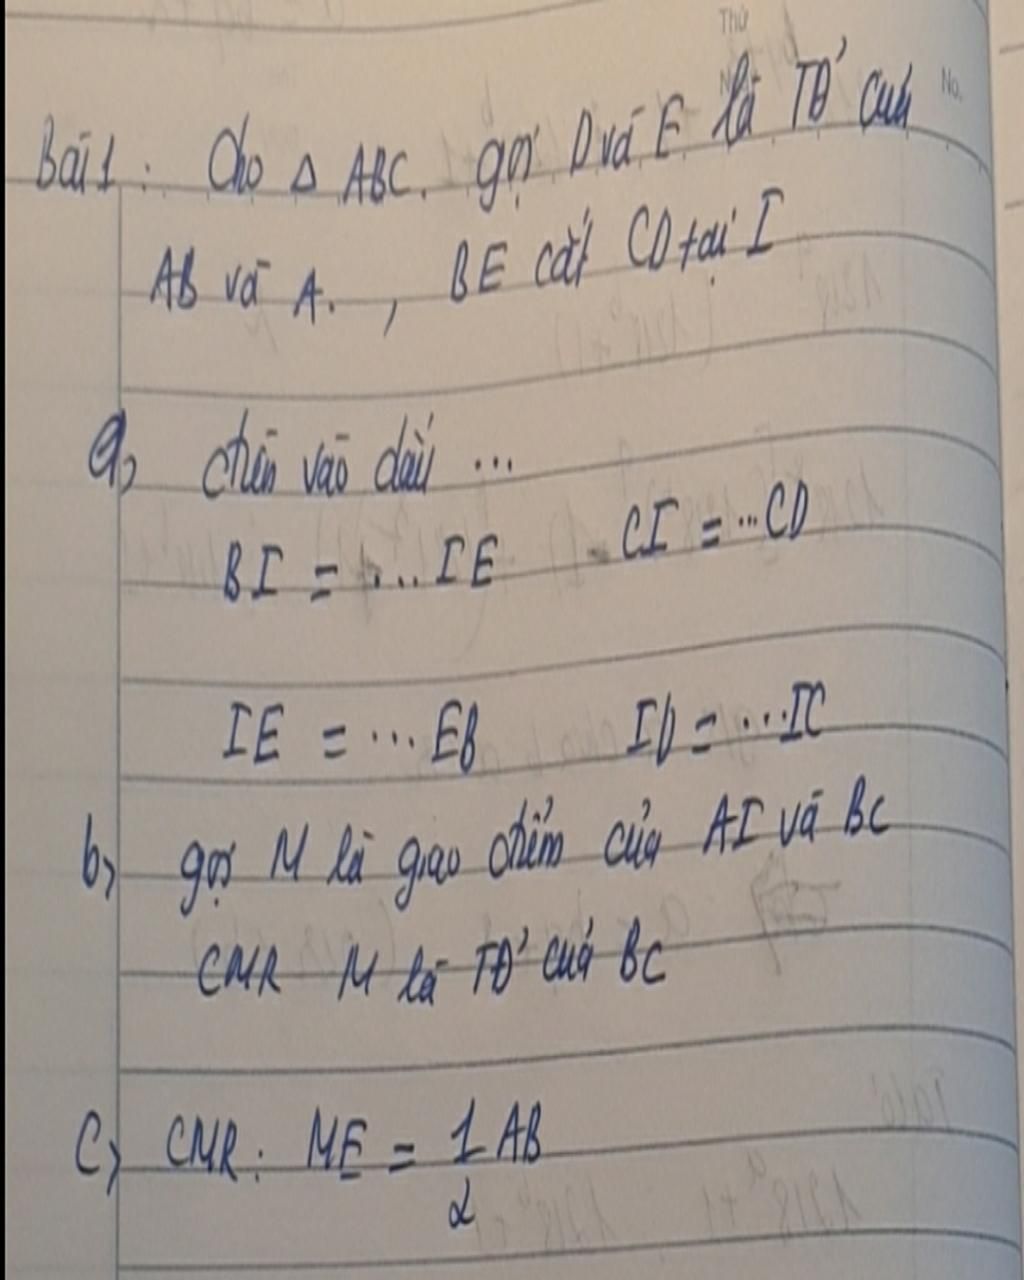 Thứ
No.
Bài 1: Cho Δ ABC. gọi D và E là TĐ' của
AB và A. , BE cắt CD tại I
a, điền vào dấu ...
BI = ... IE CI = ... CD
IE = ... EB ID = ... IC
b, gọi M là giao điểm của AI và BC
CMR M là TĐ' của BC
c, CMR: ME = 1/2 AB